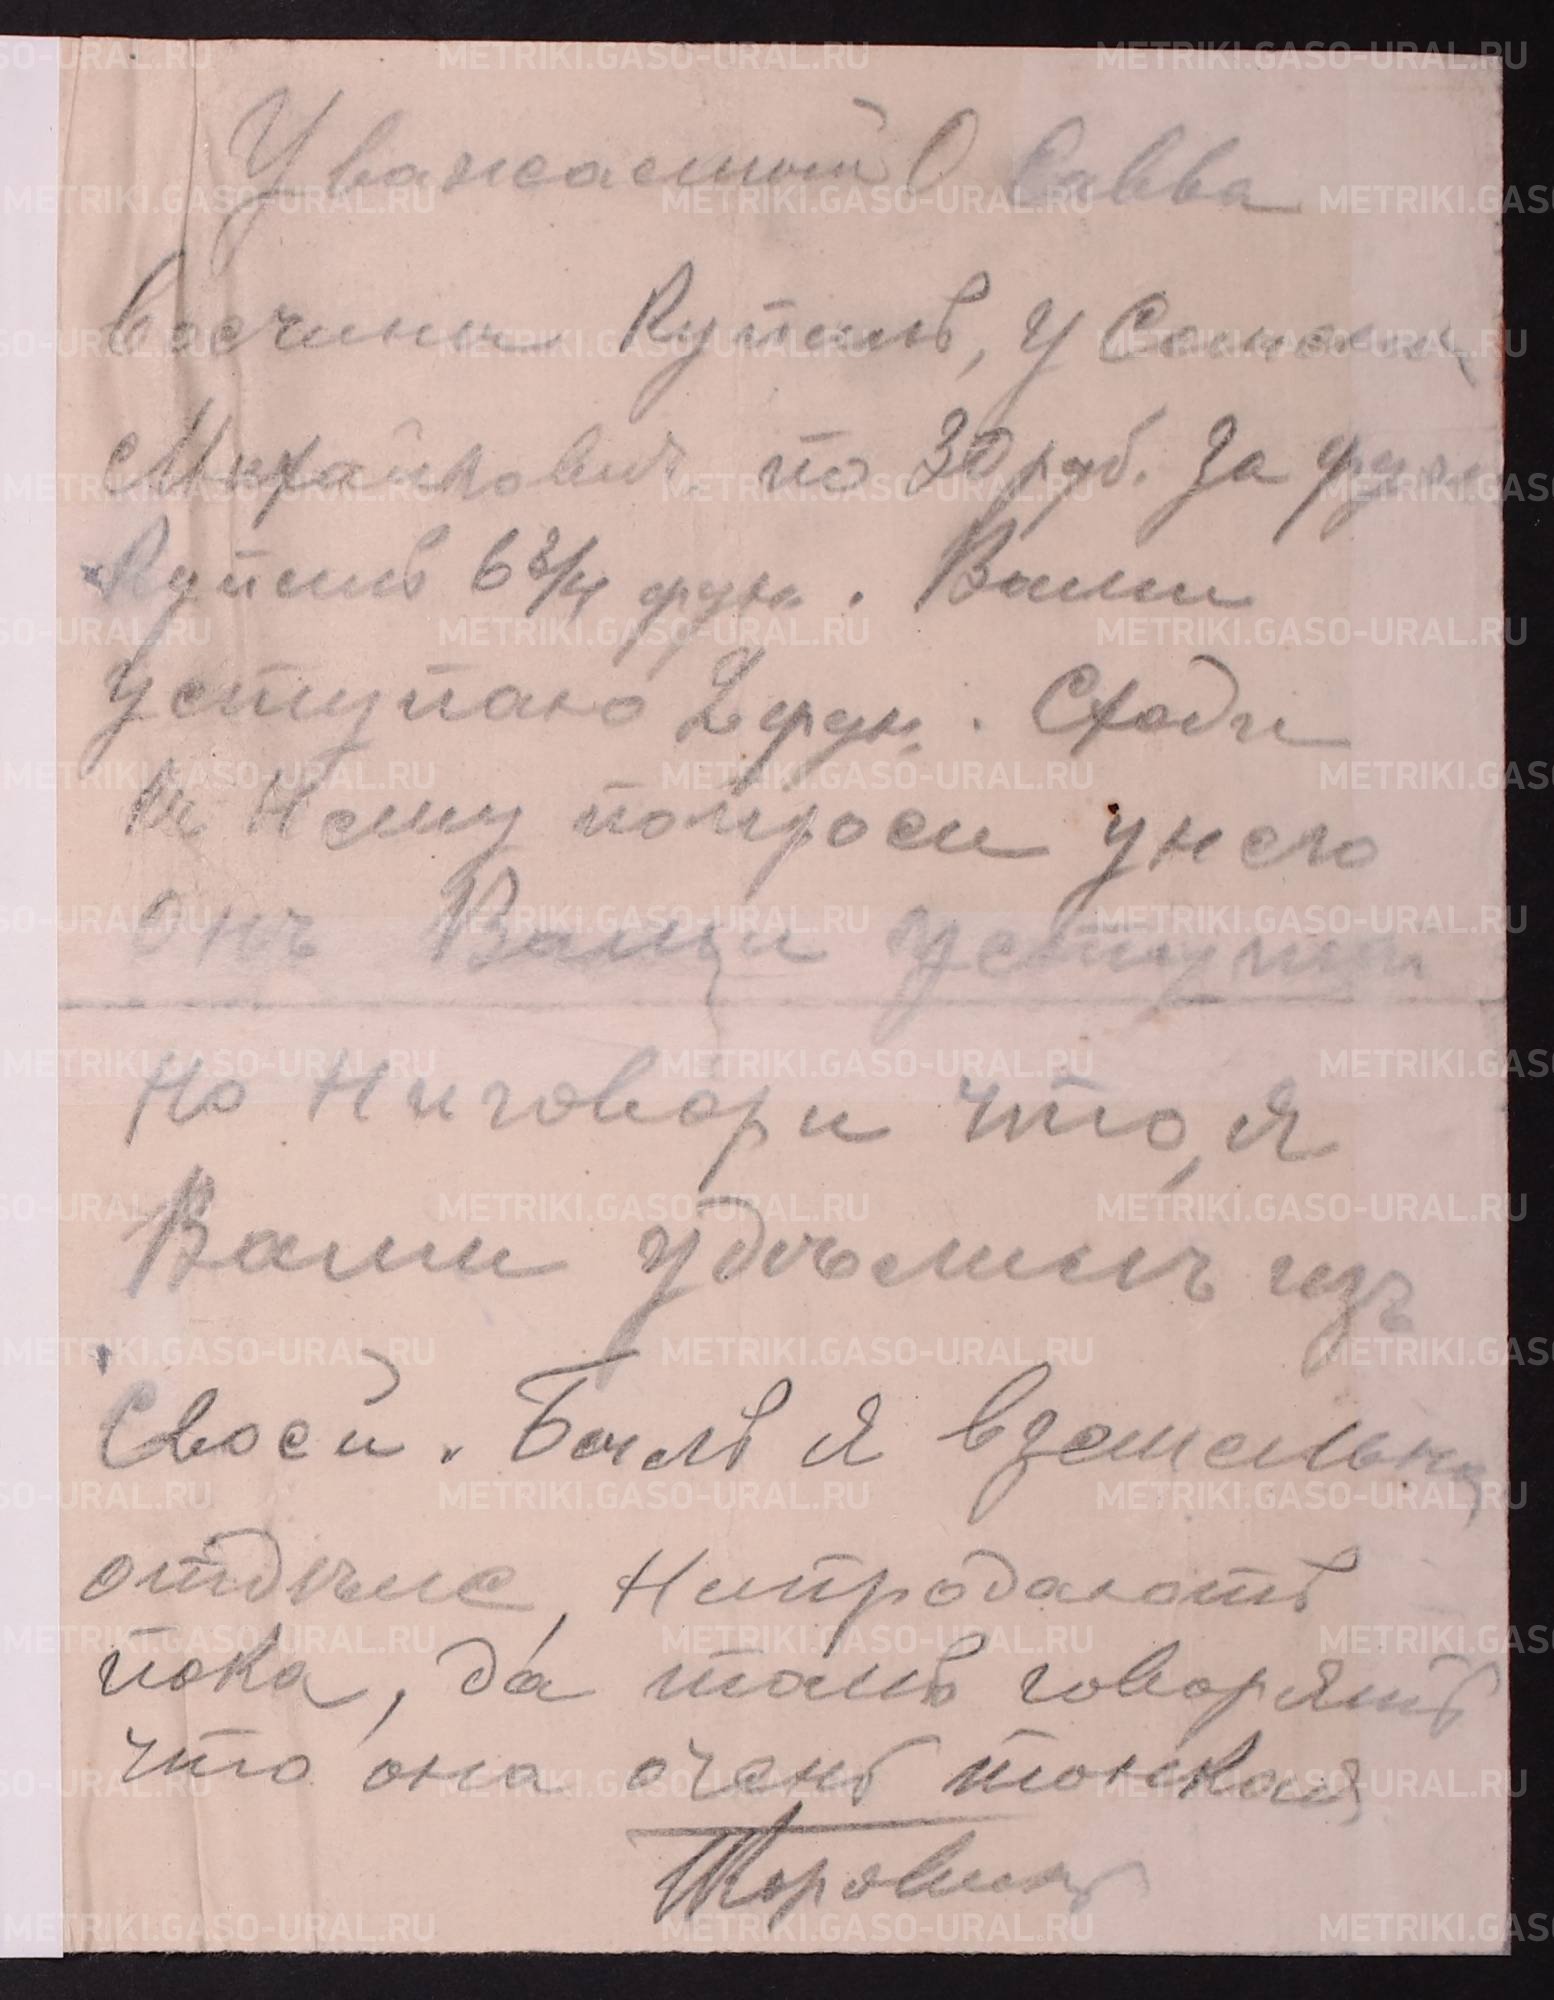 Уважаемый О Савва
Восчины Купилъ, у Семена
Михайлович. по 30 руб. За фун
Купилъ 6 3/4 фун. Вамъ
уступаю 2 фун. Сходи
къ Нему попроси унего
Онъ Вамъ уступит
Но Ниговори что, я
Вамъ удѣлилъ изъ
Своей. Былъ я взем
отдѣле, Нипродаютъ
пока, да тамъ говорятъ
что она очень тонкая
METRIKI.GASO-URAL.RU